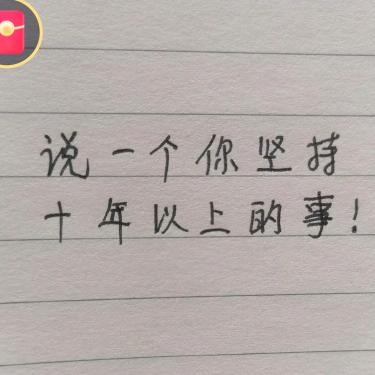 说一个你坚持
十年以上的事！